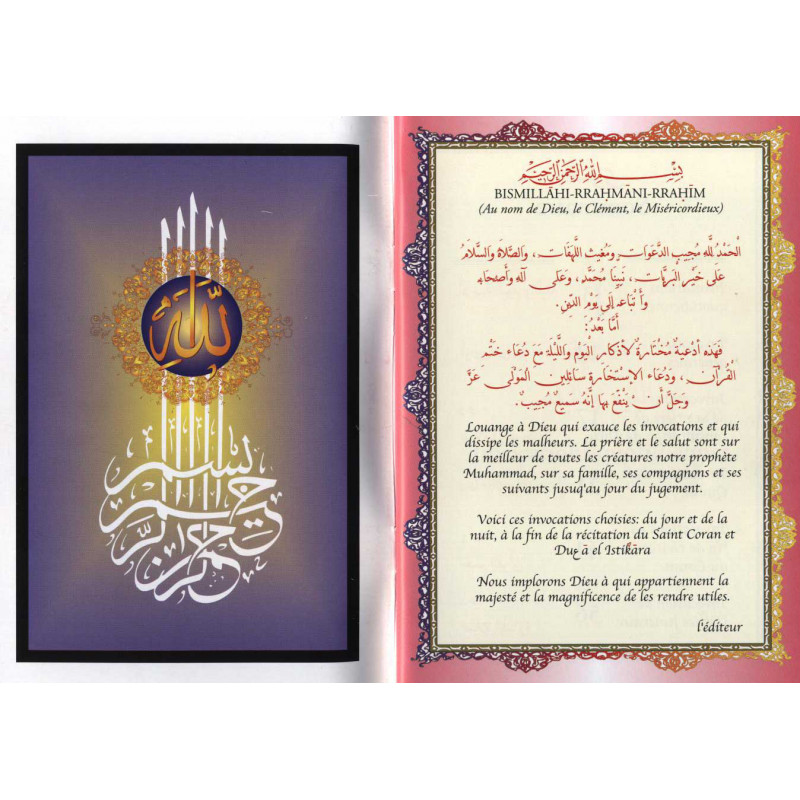 بسم الله الرحمن الرحيم
بِسْمِ اللهِ الرَّحْمَنِ الرَّحِيمِ
BISMILLĀHI-RRAḤMĀNI-RRAḤĪM
(Au nom de Dieu, le Clément, le Miséricordieux)
الْحَمْدُ لِلَّهِ مُجِيبِ الدَّعَوَاتِ وَمُغِيثِ اللَّهَفَاتِ ، وَالصَّلَاةُ وَالسَّلَامُ
عَلَى خَيْرِ الْبَرِيَّاتِ ، نَبِيِّنَا مُحَمَّدٍ ، وَعَلَى آلِهِ وَأَصْحَابِهِ
وَأَتْبَاعِهِ إِلَى يَوْمِ الدِّينِ .
أَمَّا بَعْدُ :
فَهَذِهِ أَدْعِيَةٌ مُخْتَارَةٌ لِأَذْكَارِ الْيَوْمِ وَاللَّيْلَةِ مَعَ دُعَاءِ خَتْمِ
الْقُرْآنِ ، وَدُعَاءِ الِاسْتِخَارَةِ سَائِلِينَ الْمَوْلَى عَزَّ
وَجَلَّ أَنْ يَنْفَعَ بِهَا إِنَّهُ سَمِيعٌ مُجِيبٌ .
Louange à Dieu qui exauce les invocations et qui
dissipe les malheurs. La prière et le salut sont sur
la meilleur de toutes les créatures notre prophète
Muhammad, sur sa famille, ses compagnons et ses
suivants jusuq'au jour du jugement.
Voici ces invocations choisies: du jour et de la
nuit, à la fin de la récitation du Saint Coran et
Duع ā el Istikāra
Nous implorons Dieu à qui appartiennent la
majesté et la magnificence de les rendre utiles.
l'éditeur